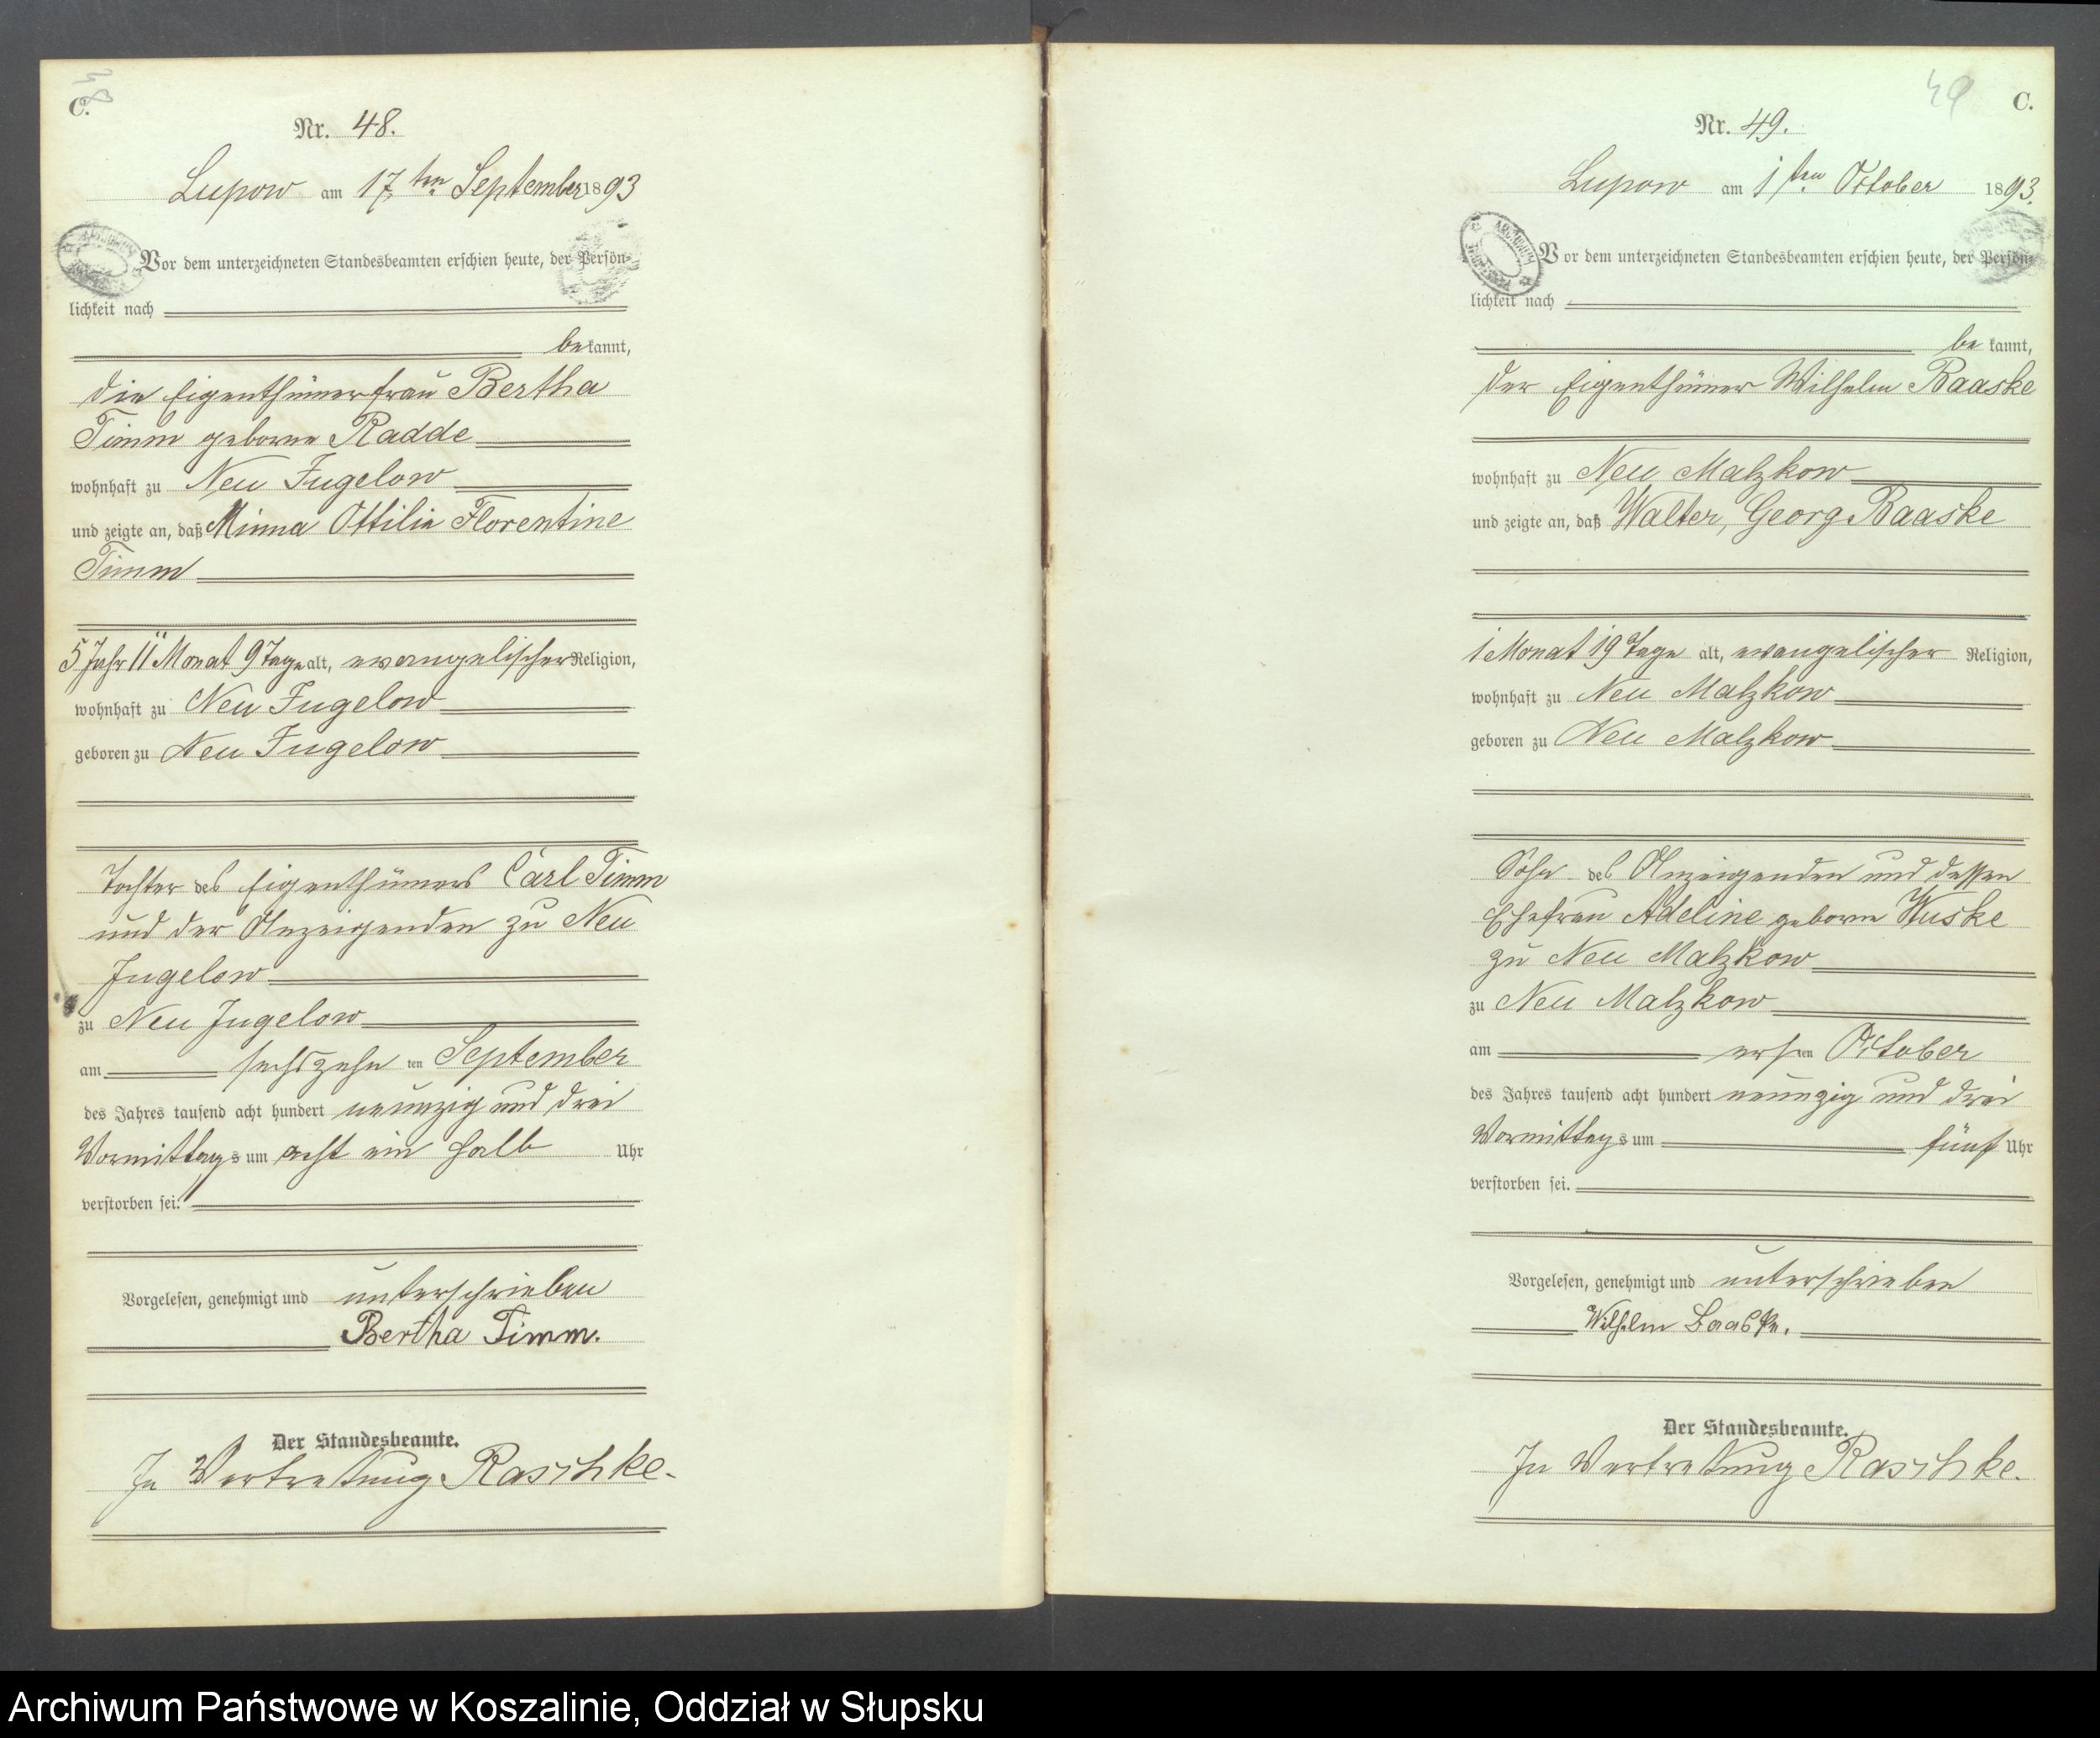 C.
38
Nr. 48.
Lupow am 17ten September 1893
Vor dem unterzeichneten Standesbeamten erschien heute, der Persön-
lichkeit nach
bekannt,
die Eigenthümerfrau Bertha
Timm geborne Radde
wohnhaft zu Neu Jugelow
und zeigte an, daß Minna Ottilie Florentine
Timm
5 Jahr 11 Monat 9 Tage alt, evangelischer Religion,
wohnhaft zu Neu Jugelow
geboren zu Neu Jugelow
Tochter des Eigenthümers Carl Timm
und der Anzeigenden zu Neu
Jugelow
zu Neu Jugelow
am sechszehnten September
des Jahres tausend acht hundert neunzig und drei
Vormittags um acht ein halb Uhr
verstorben sei.
Vorgelesen, genehmigt und unterschrieben
Bertha Timm.
Der Standesbeamte.
In Vertretung Raschke.
49
C.
Nr. 49.
Lupow am 1ten October 1893.
Vor dem unterzeichneten Standesbeamten erschien heute, der Persön-
lichkeit nach
bekannt,
der Eigenthümer Wilhelm Baaske
wohnhaft zu Neu Malzkow
und zeigte an, daß Walter, Georg Baaske
1 Monat 19 Tage alt, evangelischer Religion,
wohnhaft zu Neu Malzkow
geboren zu Neu Malzkow
Sohn des Anzeigenden und dessen
Ehefrau Adeline geborne Wuske
zu Neu Malzkow
zu Neu Malzkow
am ersten October
des Jahres tausend acht hundert neunzig und drei
Vormittags um fünf Uhr
verstorben sei.
Vorgelesen, genehmigt und unterschrieben
Wilhelm Baaske.
Der Standesbeamte.
In Vertretung Raschke.
Archiwum Państwowe w Koszalinie, Oddział w Słupsku